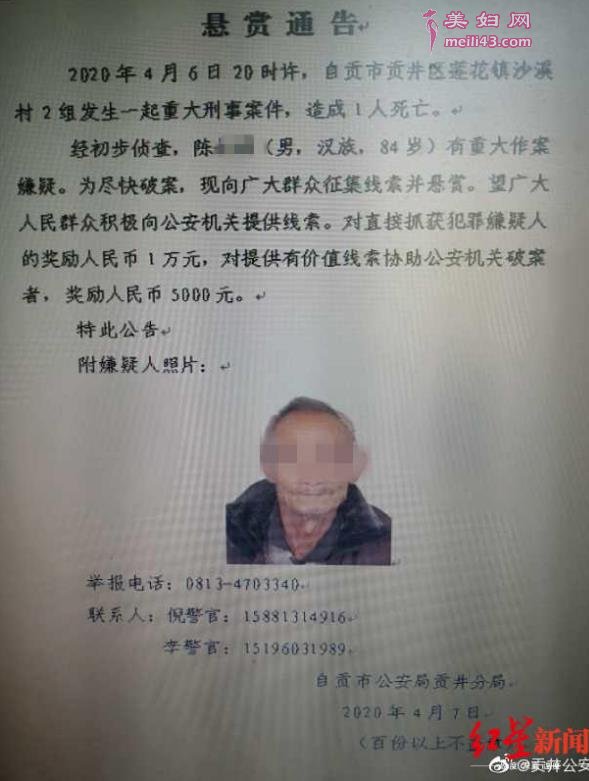 悬赏通告
美妇网
meili43.com
2020年4月6日20时许，自贡市贡井区莲花镇沙溪
村2组发生一起重大刑事案件，造成1人死亡。
经初步侦查，陈（男，汉族，84岁）有重大作案
嫌疑。为尽快破案，现向广大群众征集线索并悬赏。望广大
人民群众积极向公安机关提供线索。对直接抓获犯罪嫌疑人
的奖励人民币1万元，对提供有价值线索协助公安机关破案
者，奖励人民币5000元。
特此公告
附嫌疑人照片：
举报电话：0813-4703340
联系人：倪警官：15881314916
李警官：15196031989
自贡市公安局贡井分局
2020年4月7日
（百份以上不
红星新闻
@贡井公安